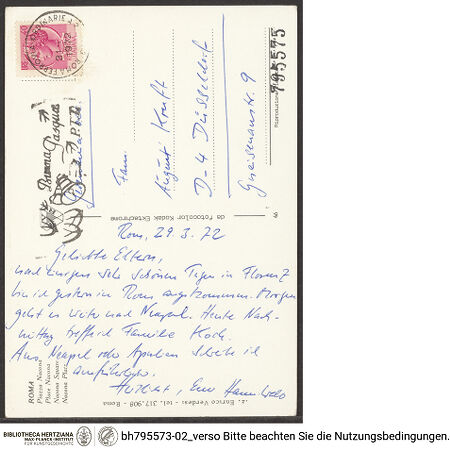 Rom, 29.3.72
Geliebte Eltern,
nach einigen sehr schönen Tagen in Florenz
bin ich gestern in Rom angekommen. Morgen
geht es weiter nach Neapel. Heute Nach-
mittag treffe ich Familie Koch.
Aus Neapel oder Apulien schreibe ich
ausführlicher.
Herzlichst, Euer
Fam.
August Kraft
D-4 Düsseldorf
Gneisenaustr. 9
Buona
Pasqua
P.T.P.
1972
795575
da Fotocolor Kodak Ektachrome
ROMA
Piazza Navona
Place Navona
Navona Square
Navona Platz
Enrico Verdesi - tel. 317.908 - Roma
BIBLIOTHECA HERTZIANA
MAX-PLANCK-INSTITUT
FÜR KUNSTGESCHICHTE
bh795573-02_verso Bitte beachten Sie die Nutzungsbedingungen.